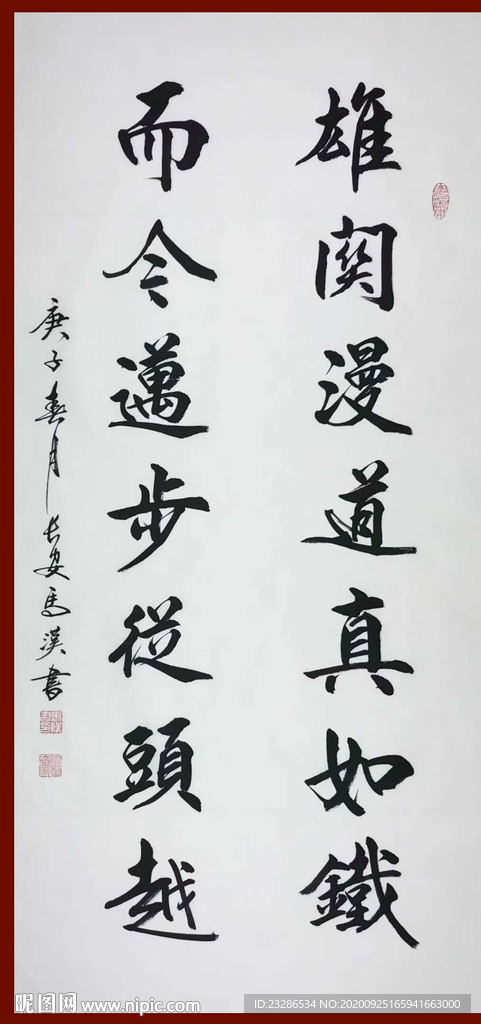 雄関漫道真如鐵
而令邁步從頭越
庚子春月长安馬漢書
昵图网 www.nipic.com
ID:23286534 NO:20200925165941663000